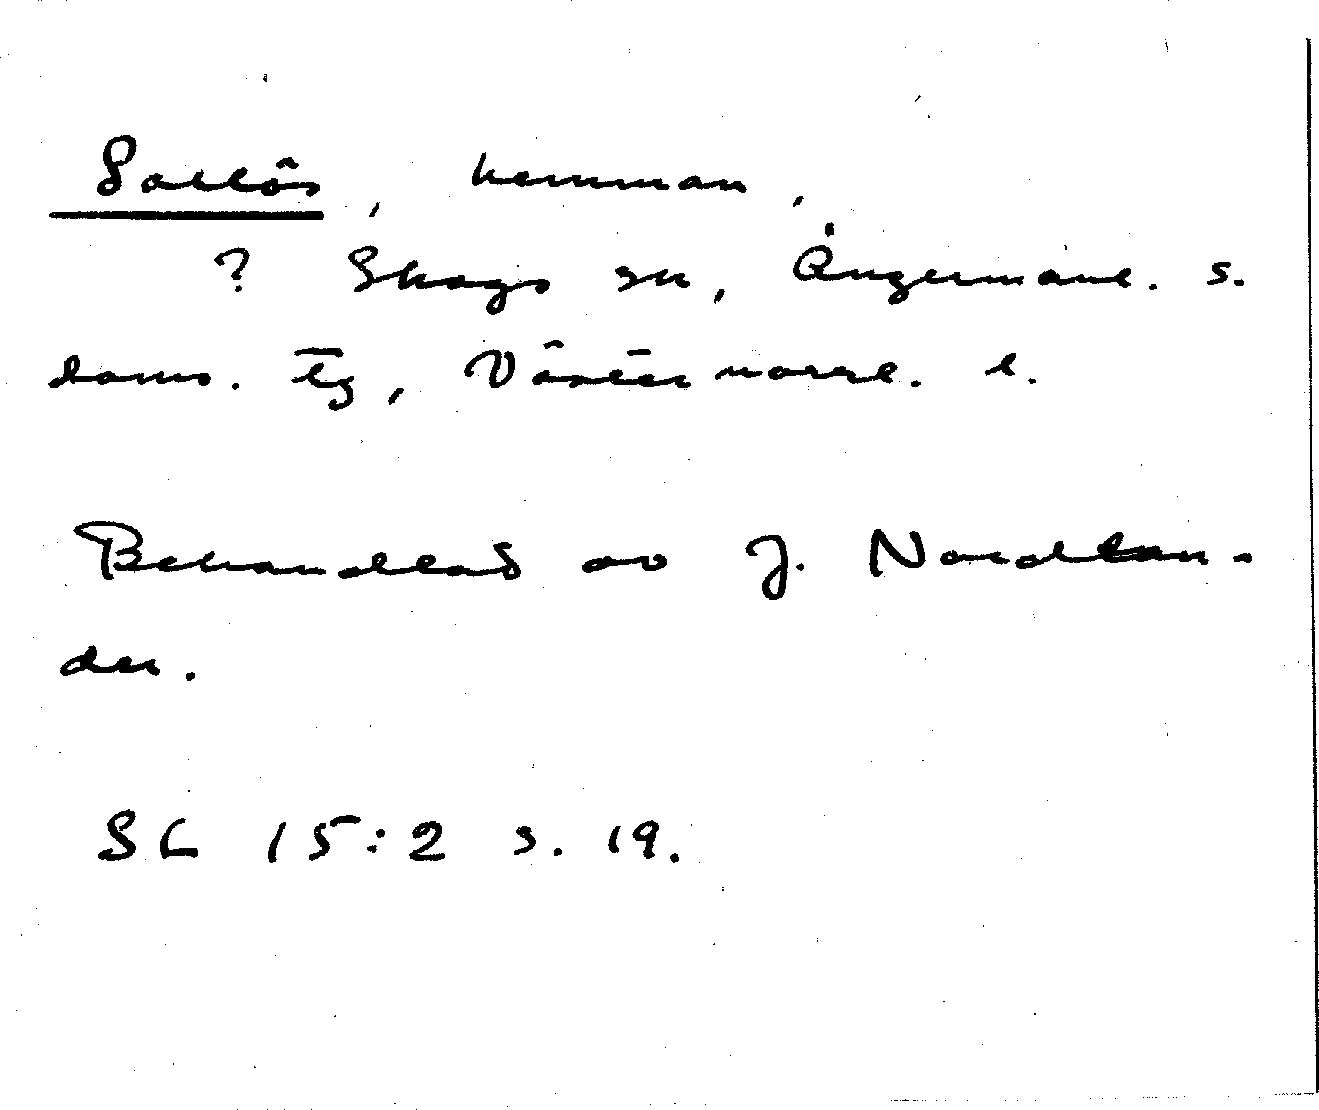 Sallös, hemman,
? Skogs sn, Ångermanl. s.
doms. tg, Västernorrl. l.
Behandlad av J. Nordlan-
der.
SL 15:2 s. 19.